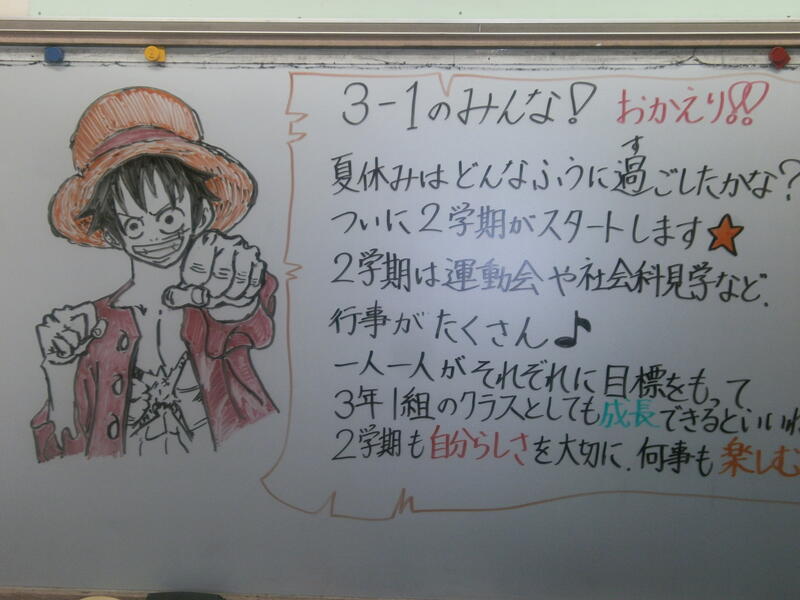 3-1のみんな! おかえり!!
夏休みはどんなふうに過ごしたかな?
す
ついに2学期がスタートします★
2学期は運動会や社会科見学など、
行事がたくさん♪
一人一人がそれぞれに目標をもって
3年1組のクラスとしても成長できるといいね
2学期も自分らしさを大切に、何事も楽しむ